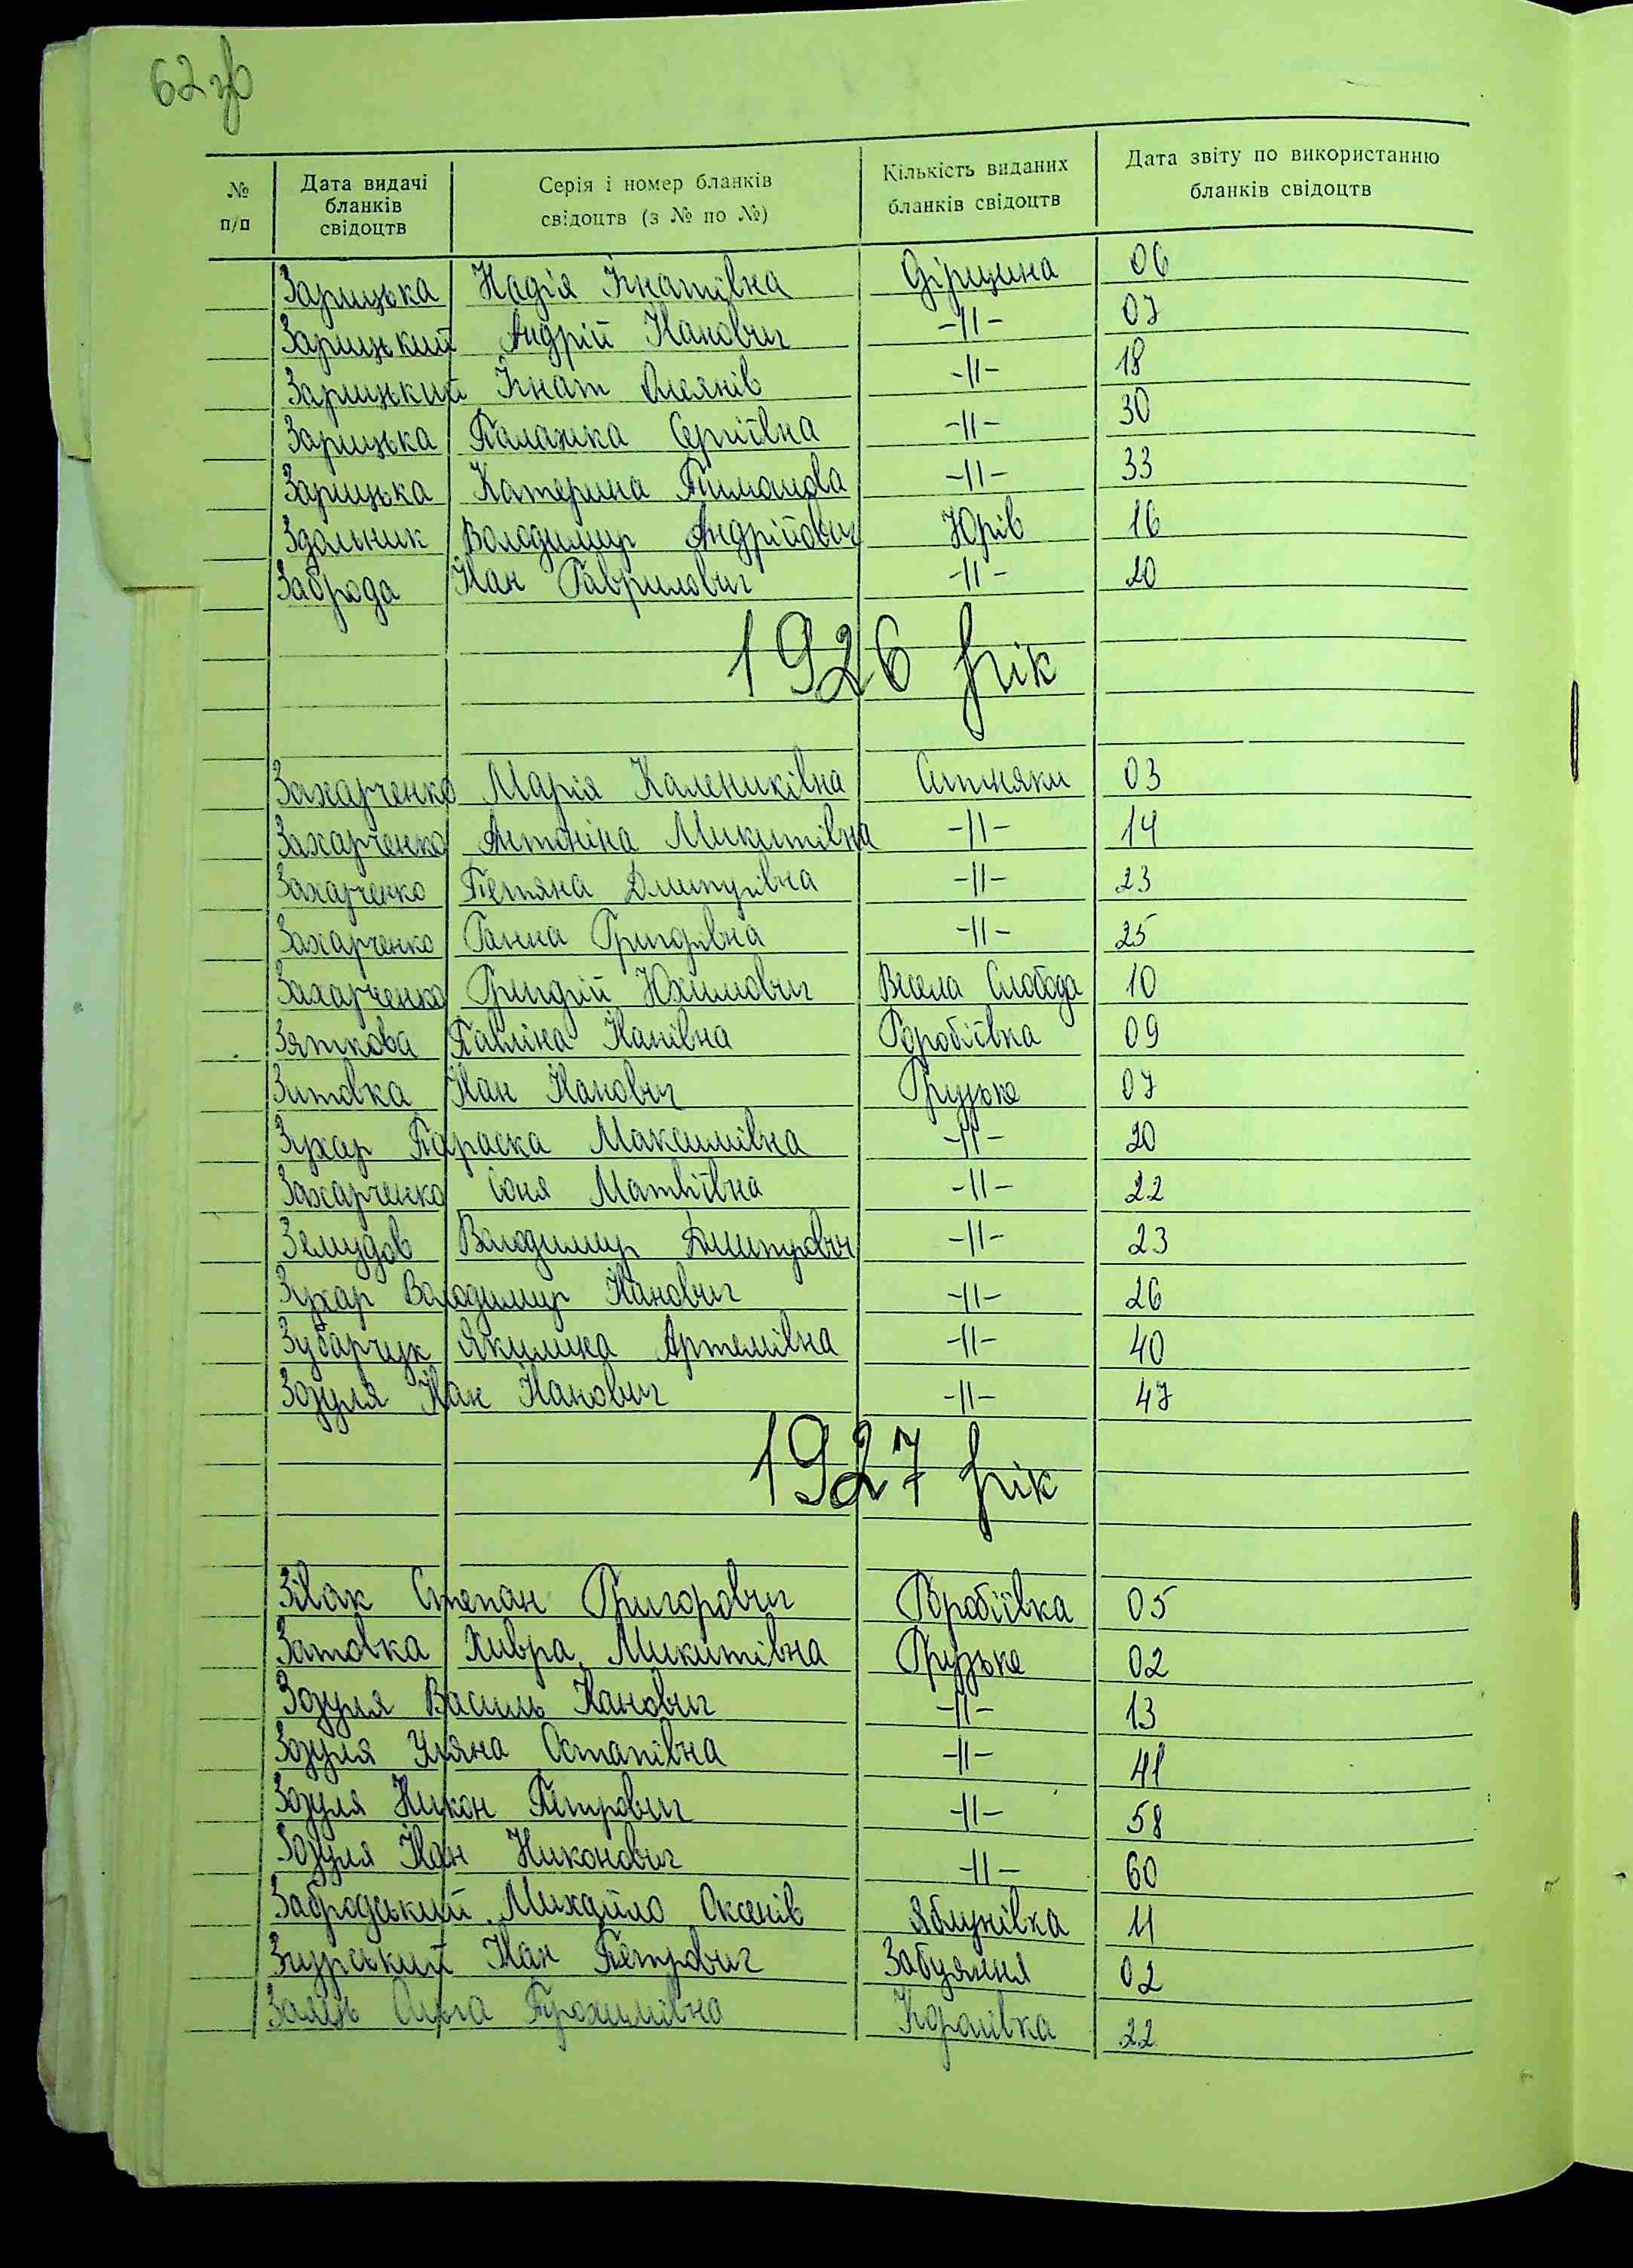 62 зв
№ п/п Дата видачі бланків свідоцтв Серія і номер бланків свідоцтв (з № по №) Кількість виданих бланків свідоцтв Дата звіту по використанню бланків свідоцтв
Зарицька Надія Ігнатівна 06
Зарицький Андрій Іванович -||- 07
Зарицький Ігнат -||- 18
Зарицька Палажка Сергіївна -||- 30
Зарицька Катерина -||- 33
Здольник Володимир Андрійович Юрів 16
Заброда Іван Гаврилович -||- 20
1926 рік
Захарченко Марія Калениківна Ситняки 03
Захарченко Антоніна Микитівна -||- 14
Захарченко Тетяна Дмитрівна -||- 23
Захарченко Ганна Григорівна -||- 25
Захарченко Григорій Юхимович Весела Слобода 10
Зяткова Галина Іванівна 09
Зитовка Іван Іванович Грузьке 07
Зухар Параска Максимівна -||- 20
Захарченко Соня Матвіївна -||- 22
Володимир Дмитрович -||- 23
Зухар Володимир Іванович -||- 26
Зубарчук Якилина Артемівна -||- 40
Зозуля Іван Іванович -||- 47
1927 рік
Зівак Степан Григорович 05
Затовка Хивра Микитівна Грузьке 02
Зозуля Василь Іванович -||- 13
Зозуля Уляна Остапівна -||- 41
Зозуля Никон Петрович -||- 58
Зозуля Іван Никонович -||- 60
Забродський Михайло Оксенів Яблунівка 11
Згурський Іван Петрович Забуяння 02
Заяць Ольга Прохимівна 22